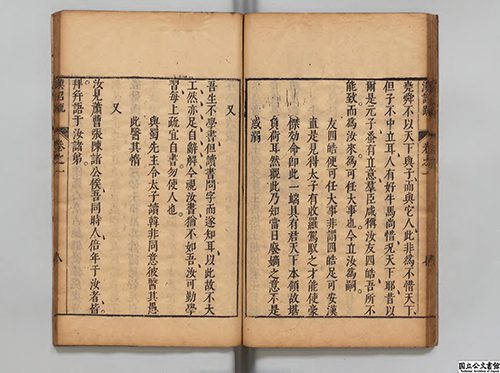 漢詔疏 卷之一
堯舜不以天下與子而與它人此非為不惜天下
但子不中立耳人有好牛馬尚惜況天下耶昔以
爾是元子蚤有立意羣臣咸稱汝友四皓吾所不
能致而為汝來為可任大事也今立汝為嗣
友四皓便可任大事非謂四皓足可安漢
直是見得太子有收羅駕馭之才能使豪
傑効命即此一端具有君天下本領故堪
負荷耳然觀此乃知當日廢嫡之意不是
惑溺
又
吾生不學書但讀書問字而遂知耳以此故不大
工然亦足自辭解今視汝書猶不如吾汝可勤學
習每上疏宜自書勿使人也
與蜀先主令太子讀韓非同意彼醫其愚
此醫其惰
又
汝見蕭曹張陳諸公侯吾同時人倍年于汝者皆
拜并語于汝諸弟
漢詔疏 卷之一 八
国立公文書館
National Archives of Japan